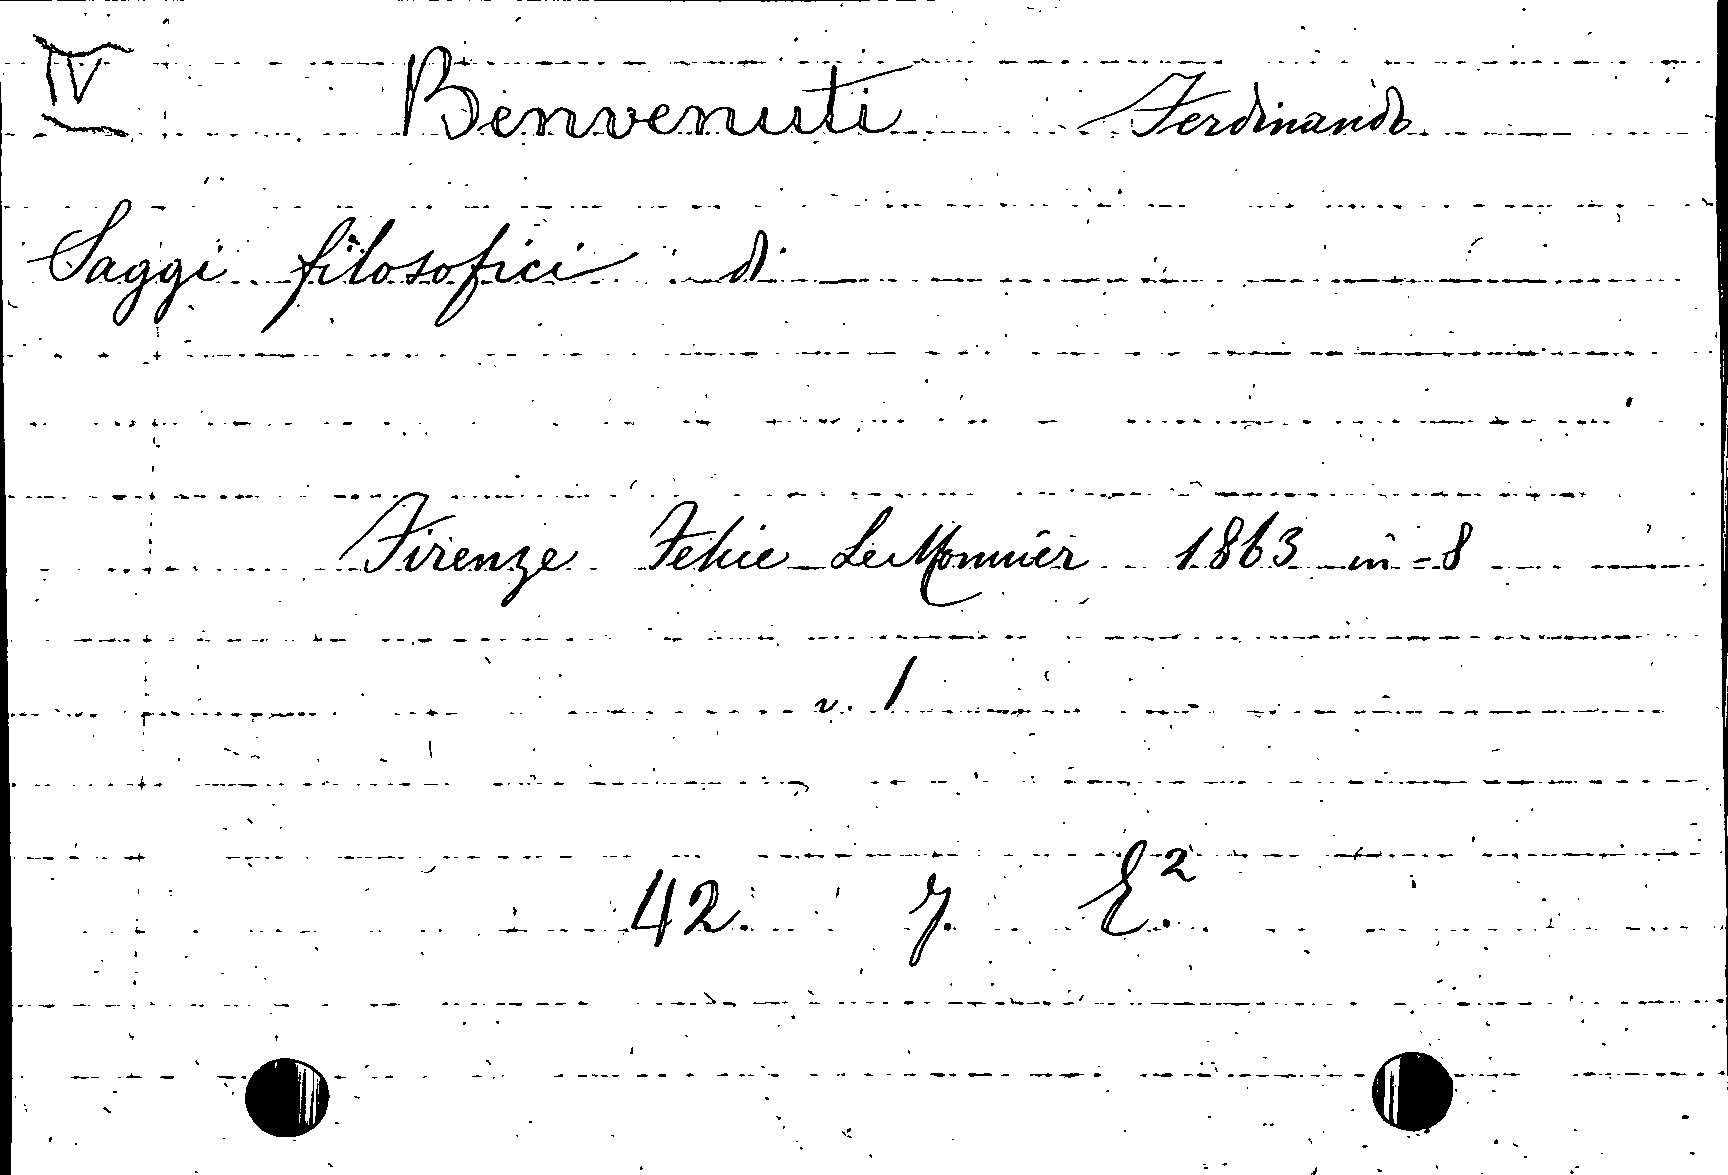 IV
Benvenuti Ferdinando
Saggi filosofici di
Firenze Felice Le Monnier 1863 in-8
v. 1
42. 7. E.²